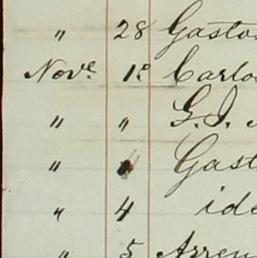 " 28 Gasto
Nov.e 1º Carlo
" " G. I.
" Gast
" 4 ide
" 5 Arren